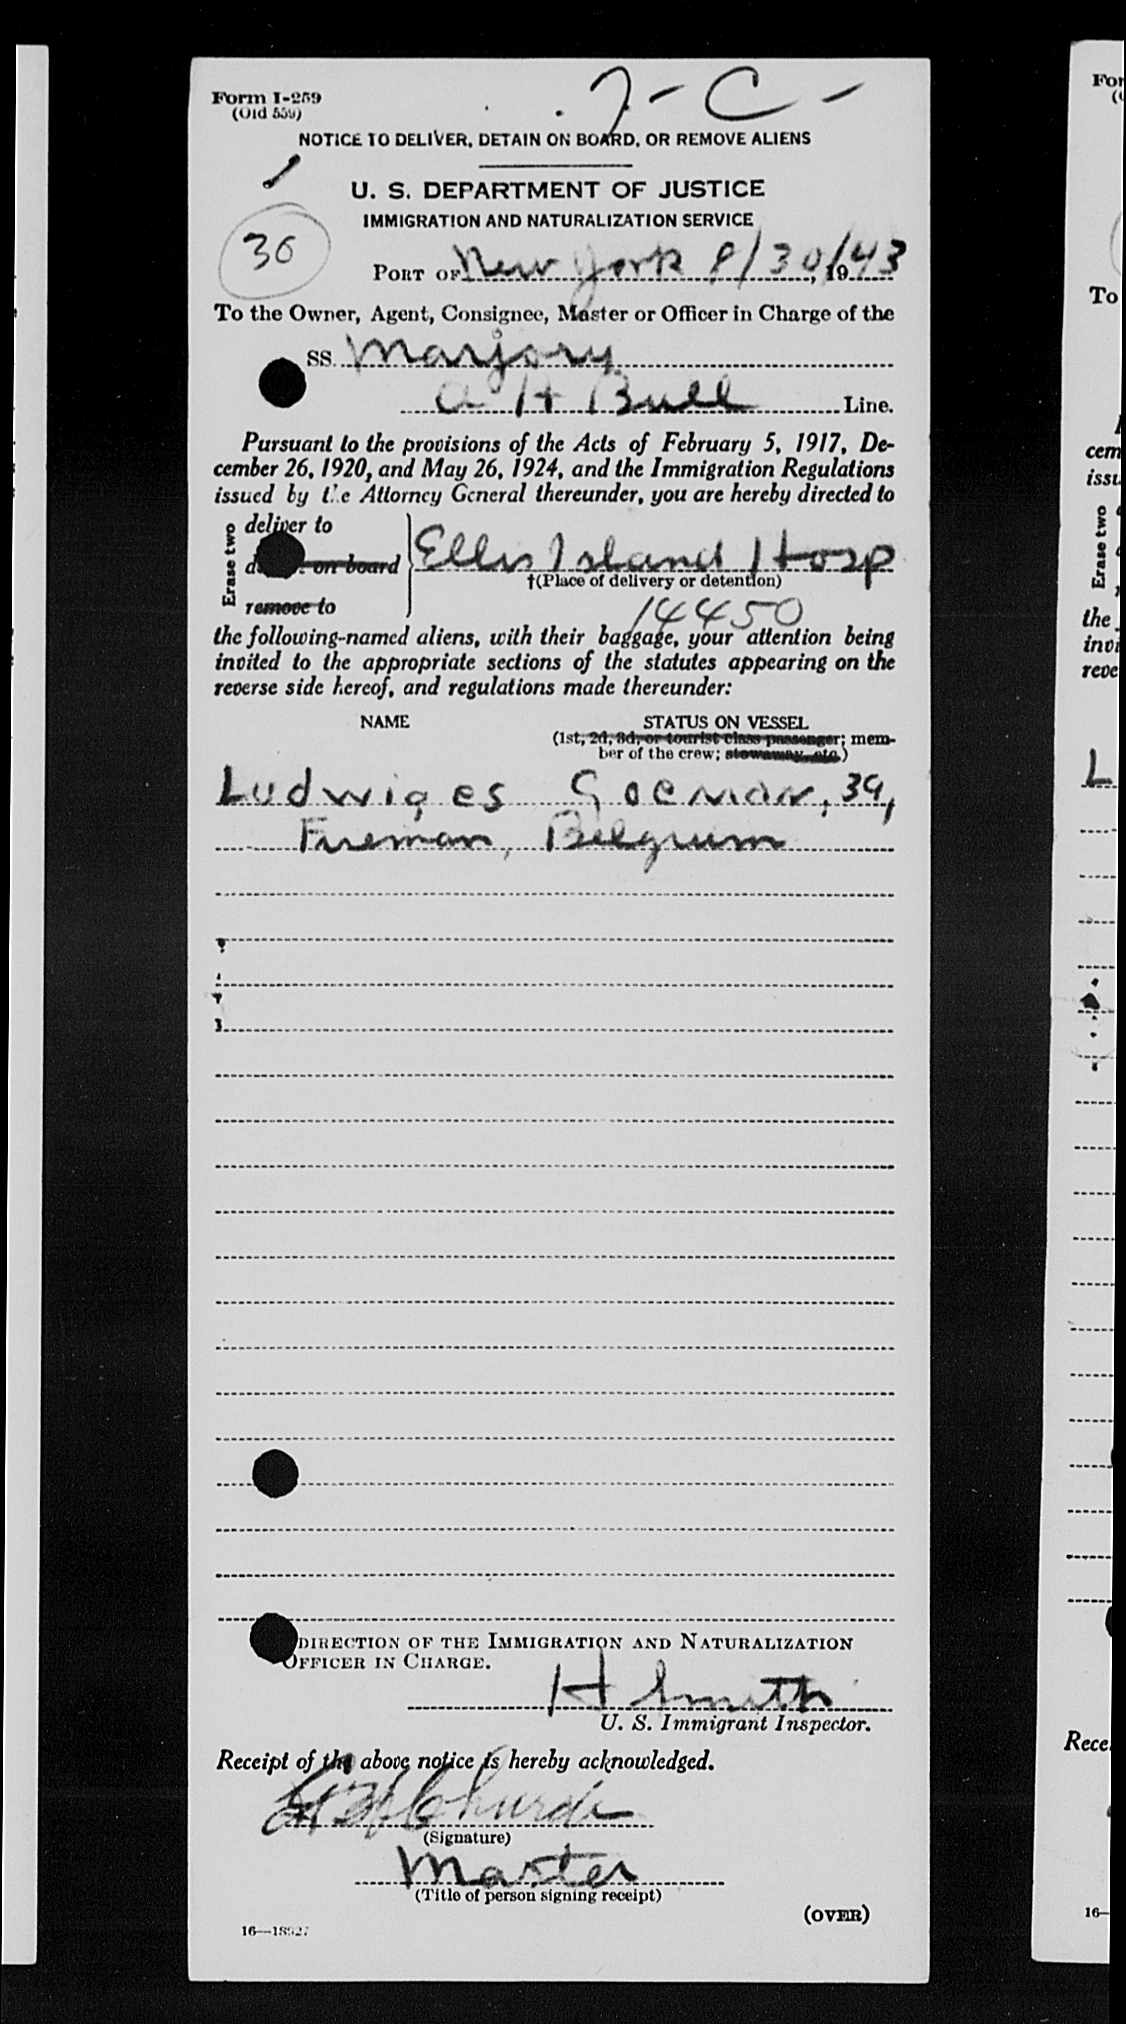 Form I-259
(Old 559)
J-C-
NOTICE TO DELIVER, DETAIN ON BOARD, OR REMOVE ALIENS
U. S. DEPARTMENT OF JUSTICE
IMMIGRATION AND NATURALIZATION SERVICE
36
PORT OF New York 8/30/, 1943
To the Owner, Agent, Consignee, Master or Officer in Charge of the
SS. Marjory
A H Bull Line.
Pursuant to the provisions of the Acts of February 5, 1917, De-
cember 26, 1920, and May 26, 1924, and the Immigration Regulations
issued by the Attorney General thereunder, you are hereby directed to
Erase two
deliver to
on board
remove to
Ellis Island Hosp
†(Place of delivery or detention)
14450
the following-named aliens, with their baggage, your attention being
invited to the appropriate sections of the statutes appearing on the
reverse side hereof, and regulations made thereunder:
NAME STATUS ON VESSEL
(1st, 2d, 3d, or tourist class passenger; mem-
ber of the crew; stowaway, etc.)
Ludwiges Goeman, 39,
Fireman, Belgium
DIRECTION OF THE IMMIGRATION AND NATURALIZATION
OFFICER IN CHARGE.
H Smith
U. S. Immigrant Inspector.
Receipt of the above notice is hereby acknowledged.
(Signature)
Master
(Title of person signing receipt)
(OVER)
To
cem
issu
Erase two
the
invi
reve
L
Rece
16—